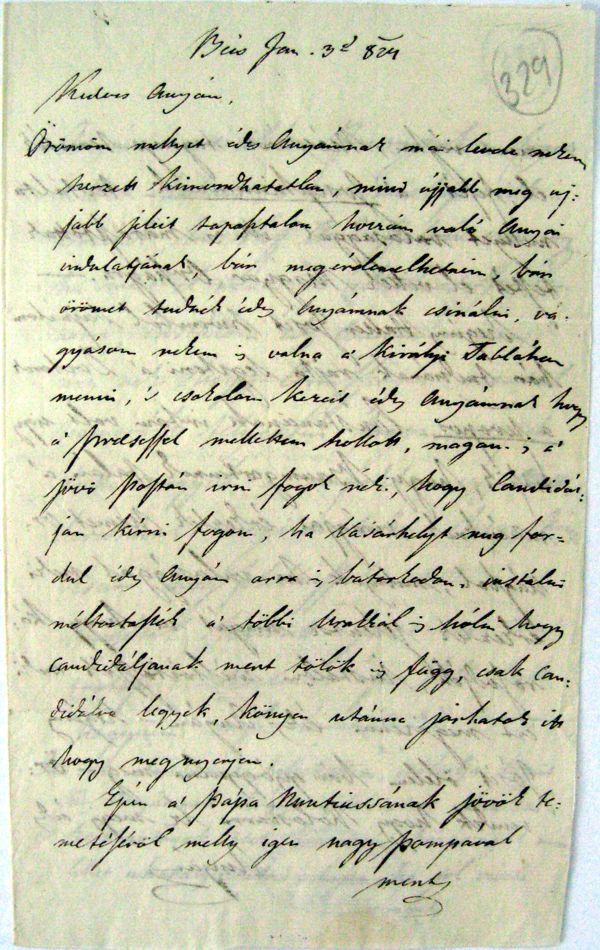 Bécs Jan. 3d 824
329
Kedves Anyám,
Örömöm mellyet édes Anyámnak mái levele nekem
szerzett kimondhatatlan, mind újjabb meg uj-
jabb jeleit tapasztalom hozzám való Anyai
indulatjának, bár megérdemelhetném, bár
örömet tudnék édes Anyámnak csinálni, vá-
gyásom nekem is volna a Királyi Táblához
menni, 's csokolom kezeit édes Anyámnak hogy
a Praeseffel mellettem szollott, magam is a
jövő Postán irni fogok neki, hogy Candidál-
jon kérni fogom, ha Vásárhelyt meg for-
dul édes Anyám arra is bátorkodom instálni
méltoztassék a többi Urakkal is szólni hogy
candidáljanak mert tőlök is függ, csak can-
didálva legyek, könyen utánna járhatok itt
hogy megnyerjem.
Épen a Pápa Nuntiussának jövök te-
metéséről melly igen nagy pompával
ment